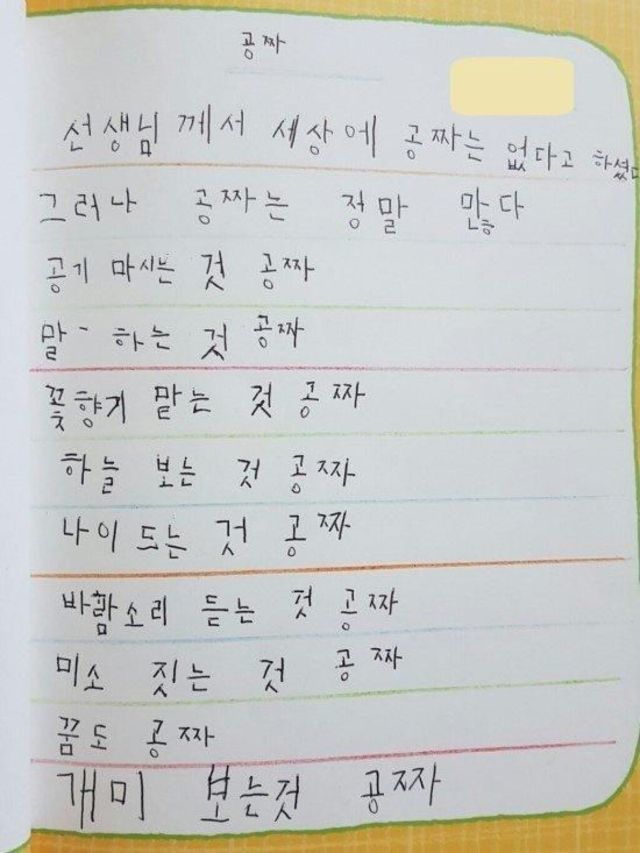 공짜
선생님 께서 세상에 공짜는 없다고 하셨다
그러나 공짜는 정말 많다
공기 마시는 것 공짜
말 - 하는 것 공짜
꽃향기 맡는 것 공짜
하늘 보는 것 공짜
나이 드는 것 공짜
바람소리 듣는 것 공짜
미소 짓는 것 공짜
꿈도 공짜
개미 보는것 공짜